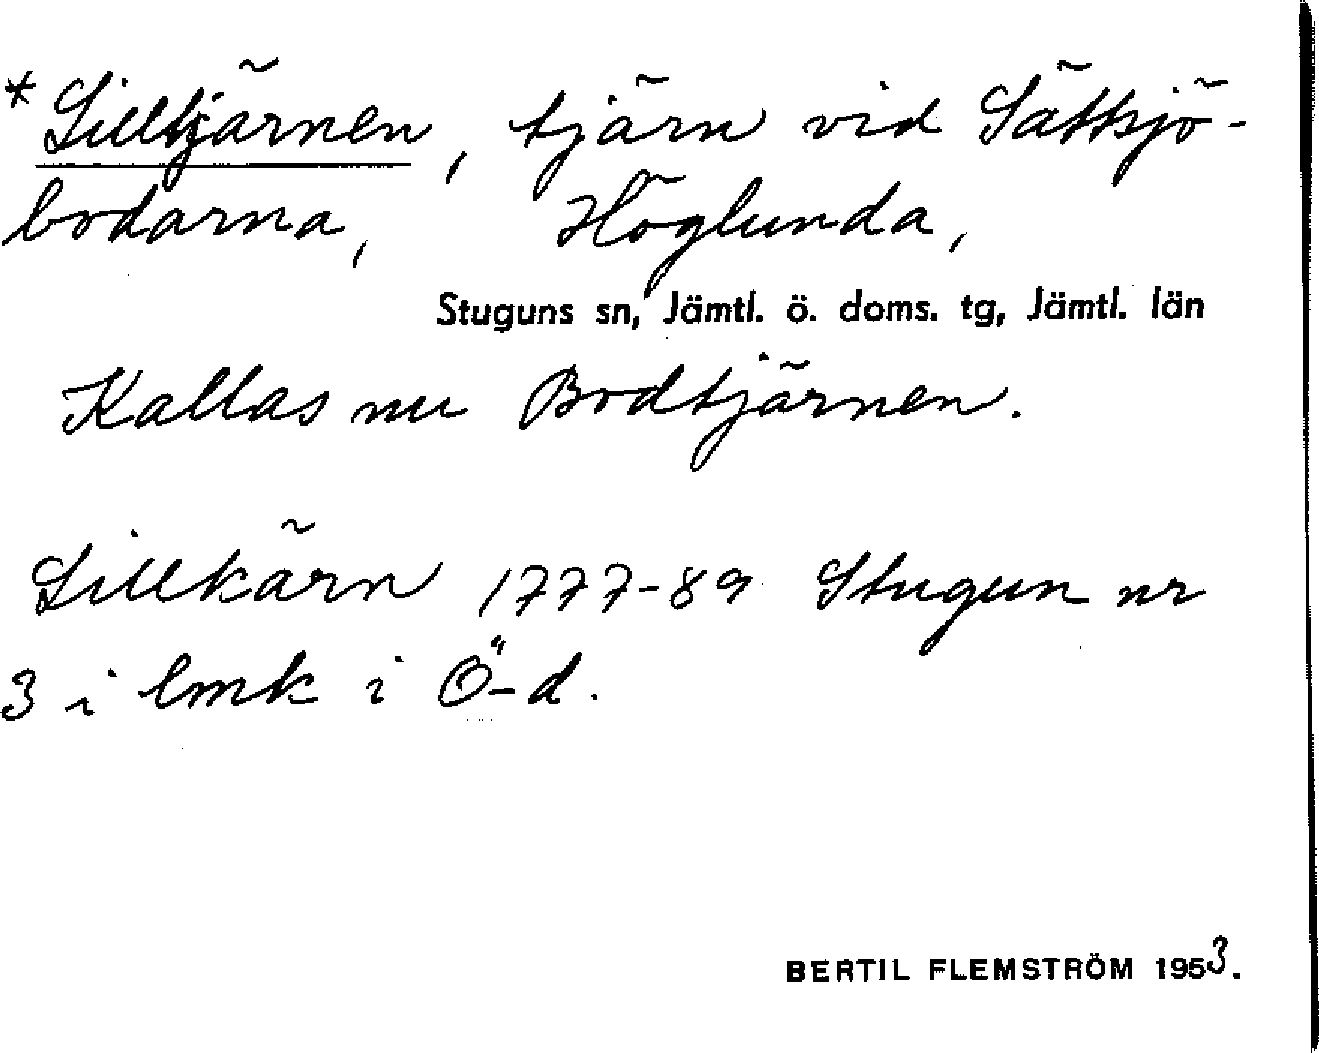 * Lilltjärnen, tjärn vid Sättsjö-
bodarna, Höglunda,
Stuguns sn, Jämtl. ö. doms. tg, Jämtl. län
Kallas nu Bodtjärnen.
Lillkärn 1777-89 Stugun nr
3 i lmk i Ö-d.
BERTIL FLEMSTRÖM 1953.